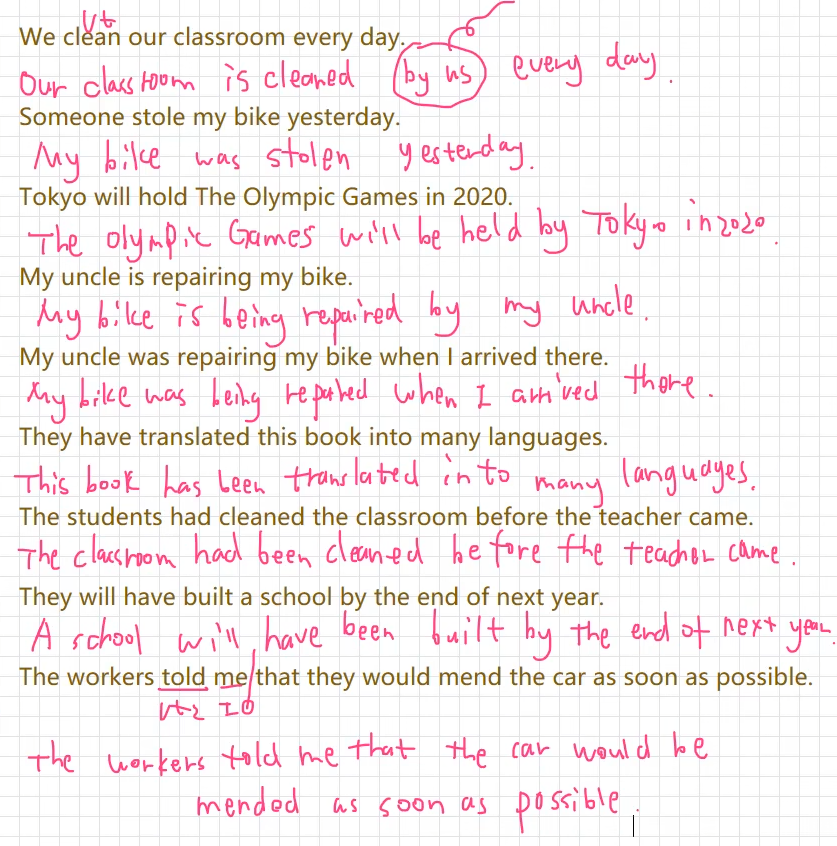 Vt
We clean our classroom every day.
Our classroom is cleaned by us every day.
Someone stole my bike yesterday.
My bike was stolen yesterday.
Tokyo will hold The Olympic Games in 2020.
The Olympic Games will be held by Tokyo in 2020.
My uncle is repairing my bike.
My bike is being repaired by my uncle.
My uncle was repairing my bike when I arrived there.
My bike was being repaired when I arrived there.
They have translated this book into many languages.
This book has been translated into many languages.
The students had cleaned the classroom before the teacher came.
The classroom had been cleaned before the teacher came.
They will have built a school by the end of next year.
A school will have been built by the end of next year.
The workers told me/that they would mend the car as soon as possible.
Vt2 IO
The workers told me that the car would be
mended as soon as possible.